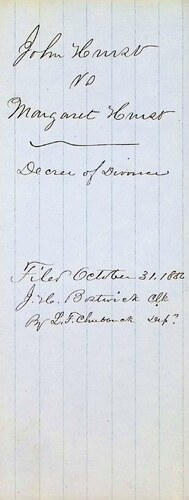 John Hurst
vs
Margaret Hurst
Decree of Divorce
Filed October 31, 188
J. H. Bostwick Clk
By L. F. Chubbuck Dep.